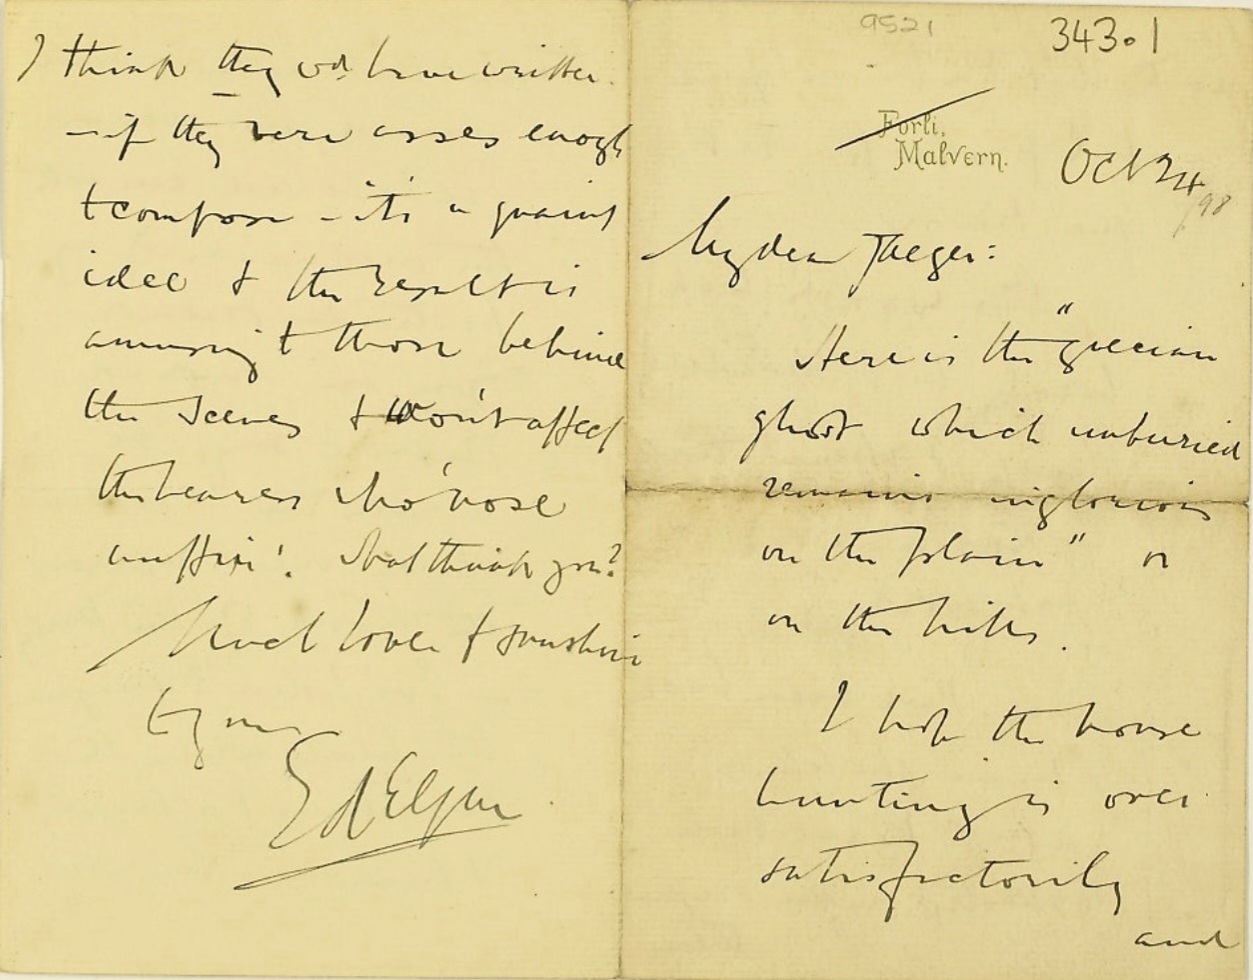 9521
343.1
Forli,
Malvern.
Oct 24
/98
My dear Jaeger:
Here is the "grecian
ghost which unburied
remains inglorious
on the plain" or
on the hills.
I hope the house
hunting is over
satisfactorily
and
I think they wd. have written
- if they were asses enough
to compose - it's a quaint
idee & the result is
amusing to those behind
the scenes & won't affect
the hearer who 'nose
nuffin'. What think you?
Much love & sunshine
to you
Ed Elgar